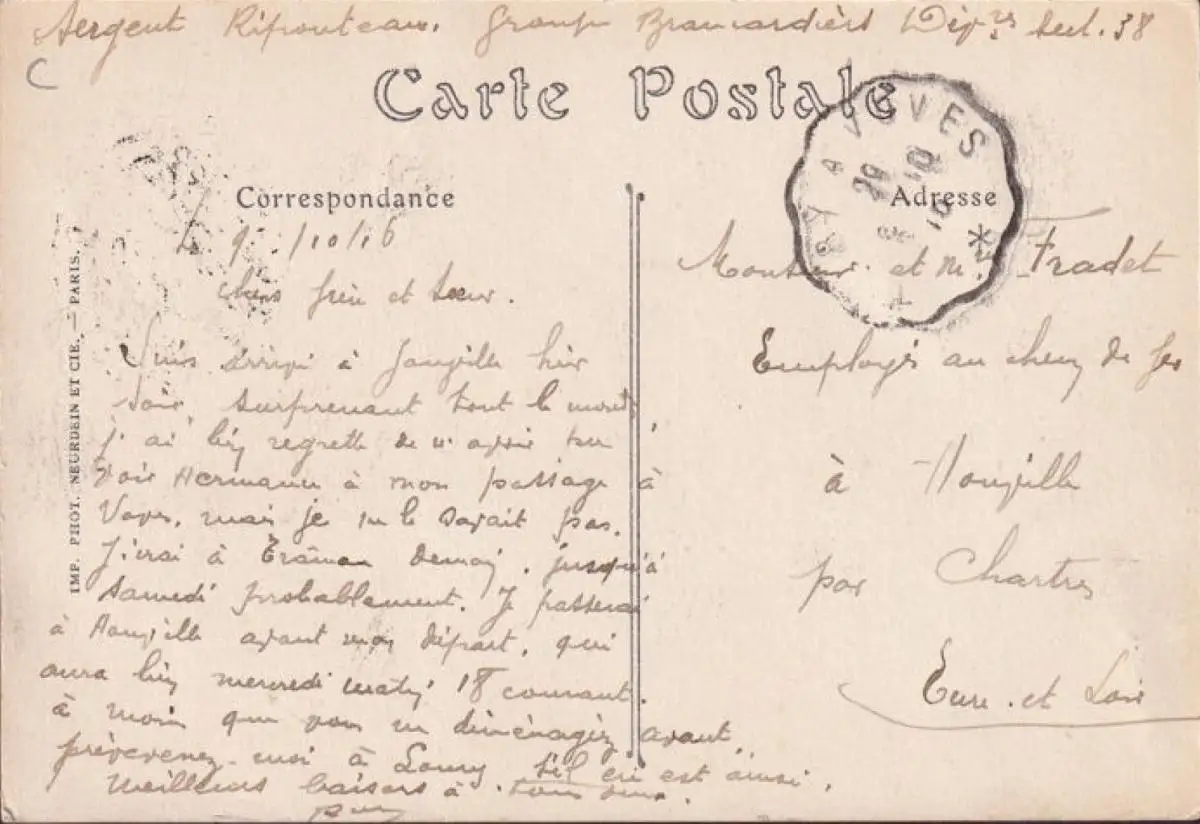 Sergent Rifouteau. Groupe Brancardiers Div.res Sect. 38
C
Carte Postale
VOVES
Correspondance
Adresse
/10/16
Chers frère et sœur.
Suis arrivé à Janville hier
soir, surprenant tout le monde,
j'ai bien regretté de n'avoir pu
voir Hermann à mon passage à
Voves, mais je ne le savait pas.
J'irai à demain, jusqu'à
samedi probablement. Je passerai
à avant mon départ, qui
aura lieu mercredi matin 18 courant.
à moin que vous ne déménagiez avant,
prévevenez-moi à Loury s'il en est ainsi.
Meilleurs baisers à tous deux.
Monsieur et Mme Fradet
Employés au chemin de fer
à
par Chartres
Eure-et-Loir
IMP. PHOT. NEURDEIN ET CIE. — PARIS.